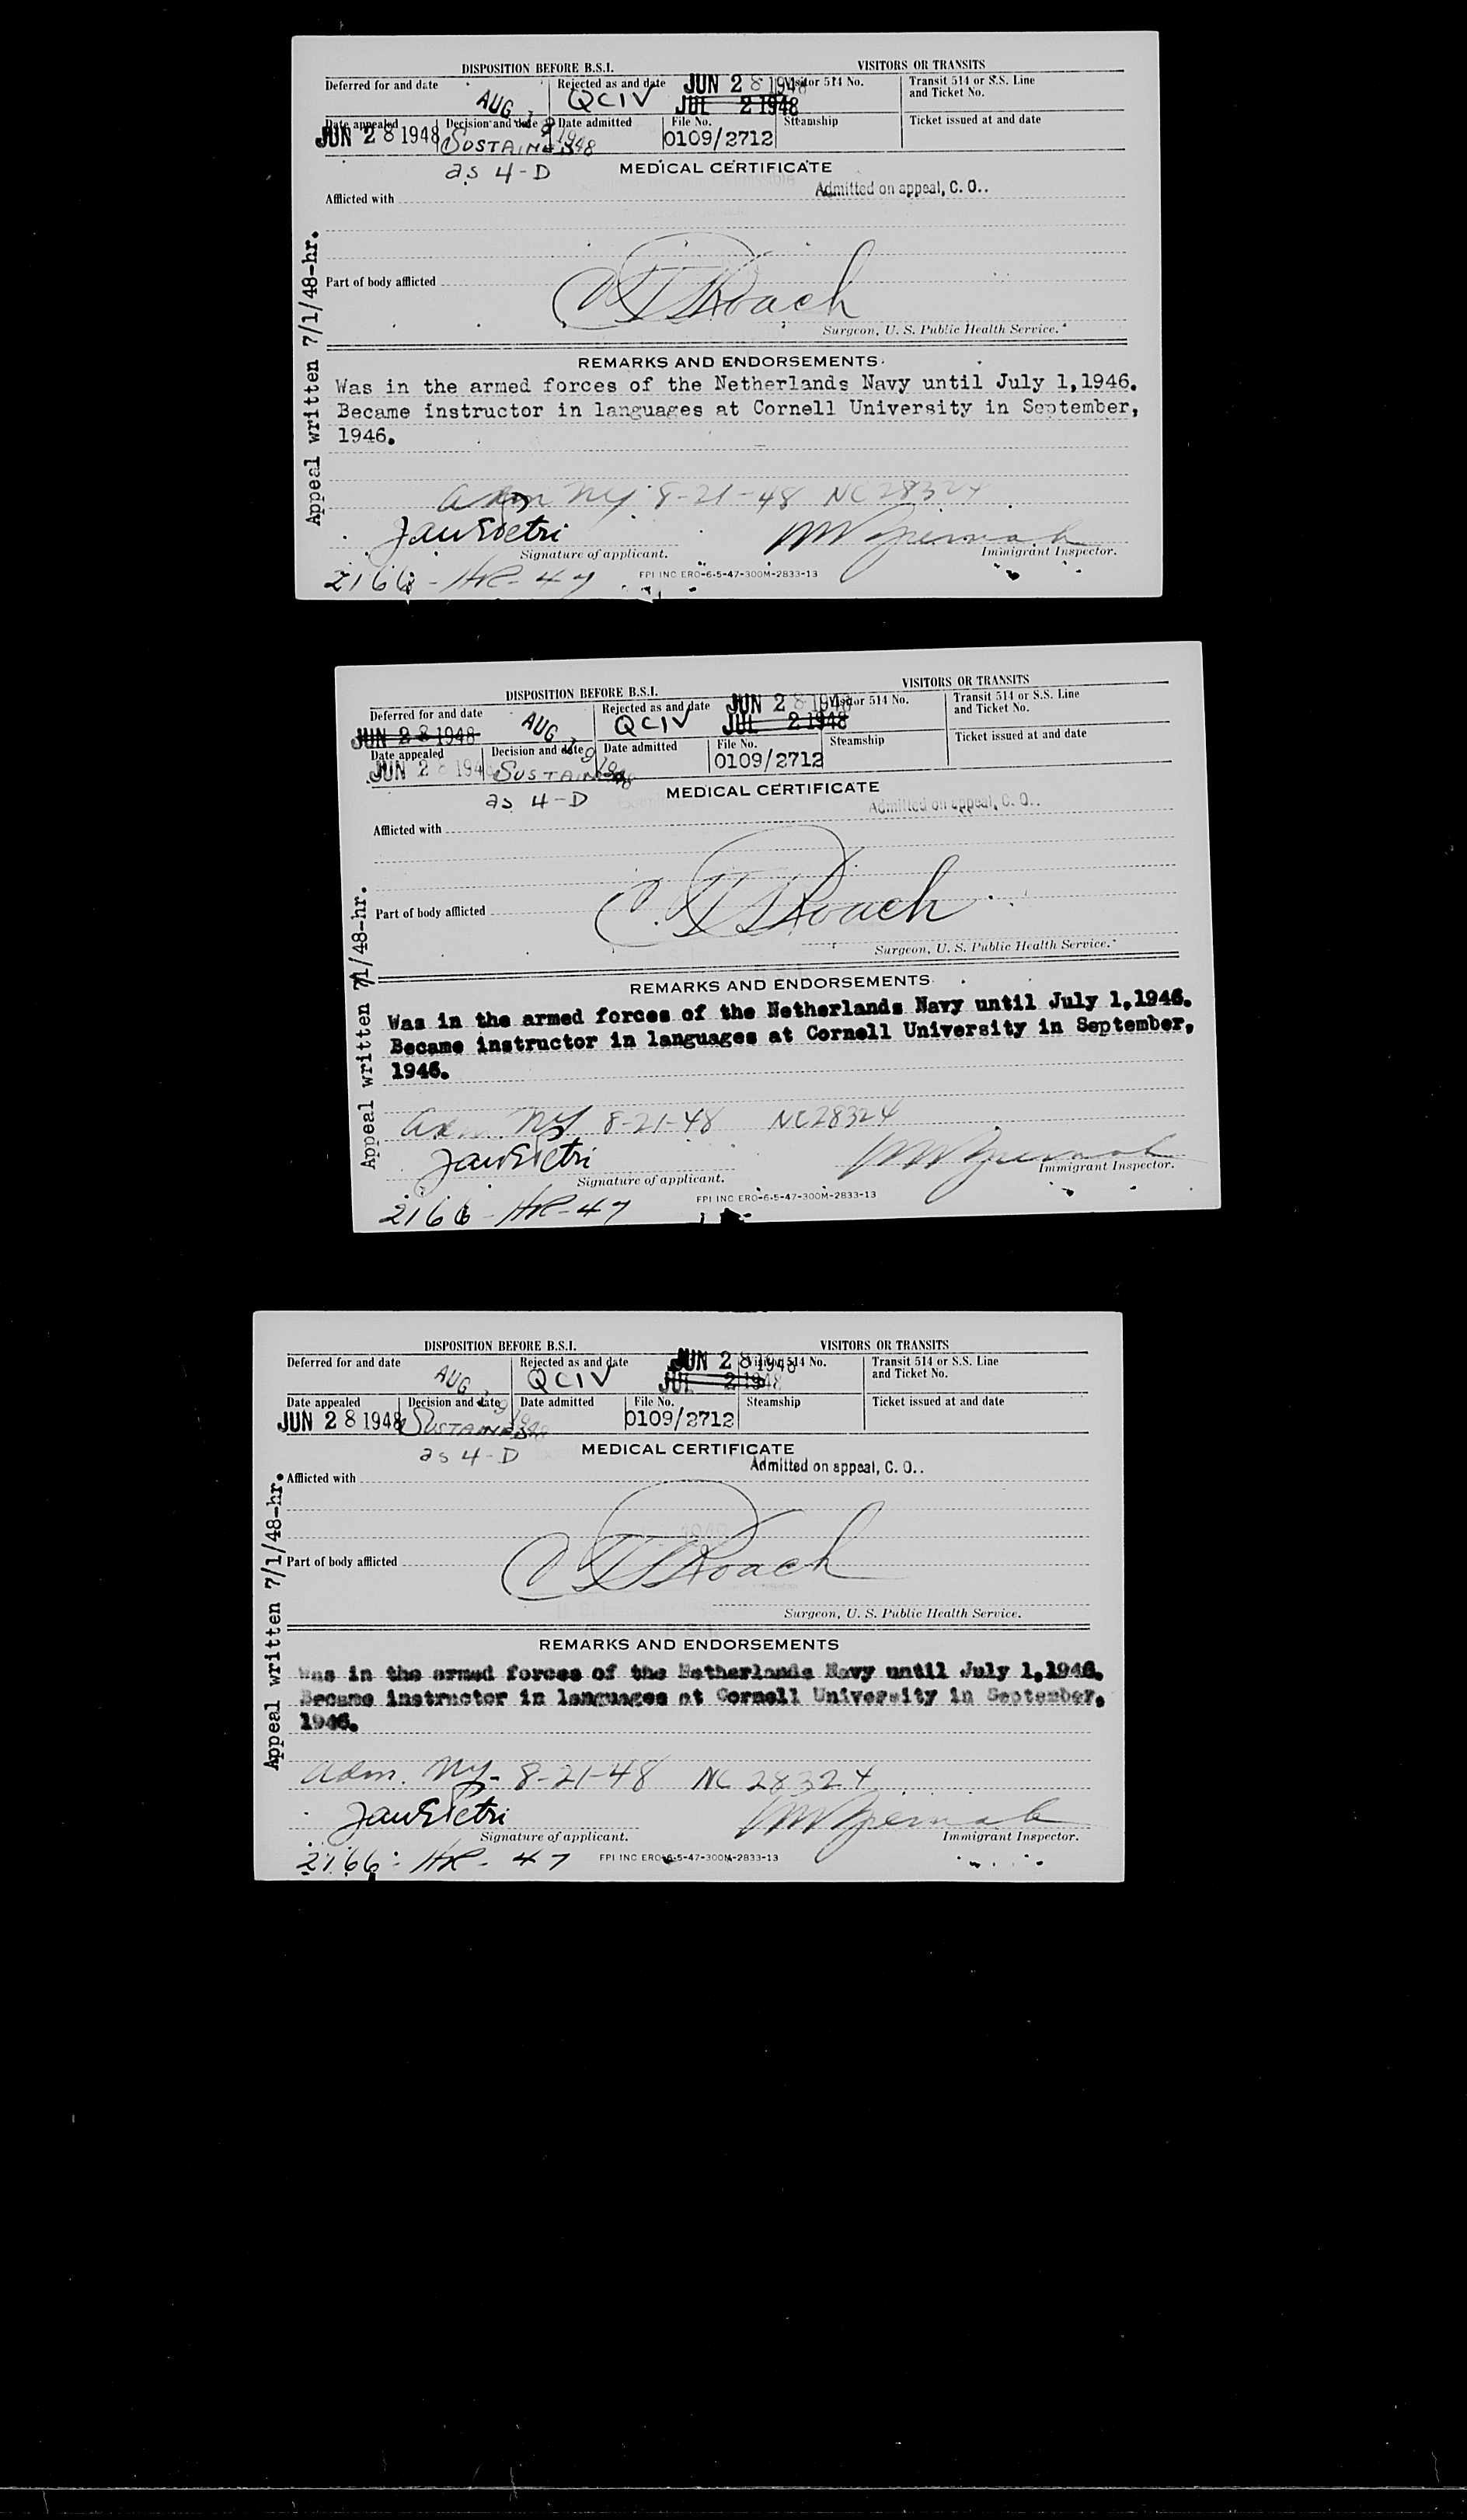 DISPOSITION BEFORE B.S.I. VISITORS OR TRANSITS
Deferred for and date Rejected as and date JUN 28 1948 Visitor 514 No. Transit 514 or S.S. Line
AUG 19 1948 QCIV JUL 2 1948 and Ticket No.
Date appealed Decision and date Date admitted File No. Steamship Ticket issued at and date
JUN 28 1948 SUSTAINED 0109/2712
as 4-D MEDICAL CERTIFICATE
Admitted on appeal, C. O..
Afflicted with
Part of body afflicted
Roach
Surgeon, U. S. Public Health Service.
Appeal written 7/1/48-hr.
REMARKS AND ENDORSEMENTS
Was in the armed forces of the Netherlands Navy until July 1,1946.
Became instructor in languages at Cornell University in September,
1946.
adm NY 8-21-48 NC 28324
Signature of applicant. Immigrant Inspector.
2166-HR-47 FPI INC ERO-6-5-47-300M-2833-13
DISPOSITION BEFORE B.S.I. VISITORS OR TRANSITS
Deferred for and date Rejected as and date JUN 28 1948 Visitor 514 No. Transit 514 or S.S. Line
JUN 28 1948 AUG 19 1948 QCIV JUL 2 1948 and Ticket No.
Date appealed Decision and date Date admitted File No. Steamship Ticket issued at and date
JUN 28 1948 SUSTAINED 0109/2712
as 4-D MEDICAL CERTIFICATE
Admitted on appeal, C. O..
Afflicted with
Part of body afflicted
Roach
Surgeon, U. S. Public Health Service.
Appeal written 7/1/48-hr.
REMARKS AND ENDORSEMENTS
Was in the armed forces of the Netherlands Navy until July 1,1946.
Became instructor in languages at Cornell University in September,
1946.
adm. NY 8-21-48 NC28324
Signature of applicant. Immigrant Inspector.
2166-HR-47 FPI INC ERO-6-5-47-300M-2833-13
DISPOSITION BEFORE B.S.I. VISITORS OR TRANSITS
Deferred for and date Rejected as and date JUN 28 1948 Visitor 514 No. Transit 514 or S.S. Line
AUG 19 1948 QCIV JUL 2 1948 and Ticket No.
Date appealed Decision and date Date admitted File No. Steamship Ticket issued at and date
JUN 28 1948 SUSTAINED 0109/2712
as 4-D MEDICAL CERTIFICATE
Admitted on appeal, C. O..
Afflicted with
Part of body afflicted
Roach
Surgeon, U. S. Public Health Service.
Appeal written 7/1/48-hr.
REMARKS AND ENDORSEMENTS
Was in the armed forces of the Netherlands Navy until July 1,1946.
Became instructor in languages at Cornell University in September,
1946.
adm. NY- 8-21-48 NC 28324
Signature of applicant. Immigrant Inspector.
2166-HR-47 FPI INC ERO-6-5-47-300M-2833-13